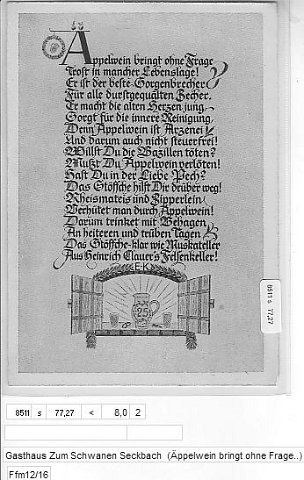 Äppelwein bringt ohne Frage
Trost in mancher Lebenslage!
Er ist der beste Sorgenbrecher
Für alle durstgequälten Zecher.
Er macht die alten Herzen jung,
Sorgt für die innere Reinigung,
Denn Äppelwein ist Arzenei
Und darum auch nicht steuerfrei!
Willst Du die Bazillen töten?
Mußt Du Äppelwein verlöten!
Hast Du in der Liebe Pech?
Das Stöffche hilft Dir drüber weg!
Rheismateis und Zipperlein
Verhütet man durch Äppelwein!
Darum trinket mit Behagen
An heiteren und trüben Tagen
Das Stöffche-klar wie Muskateller
Aus Heinrich Clauer's Felsenkeller!
E·K
25
8511 s 77,27
8511 s 77,27 < 8,0 2
Gasthaus Zum Schwanen Seckbach (Äppelwein bringt ohne Frage..)
Ffm12/16